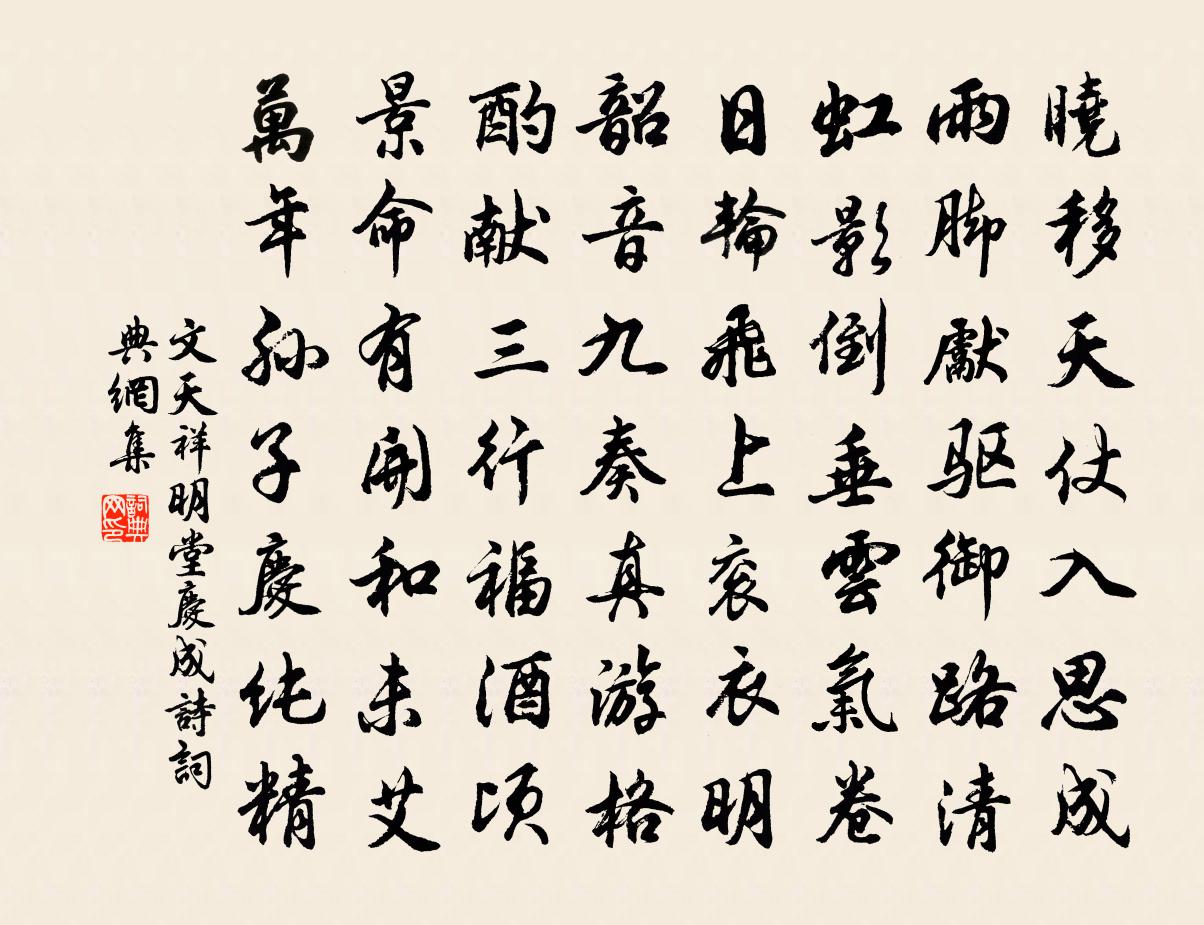 曉移天仗入思成
雨脚獻驱御路清
虹影倒垂雲氣卷
日輪飛上衮衣明
韶音九奏真游格
酌献三行福酒頃
景命有開和未艾
萬年孙子慶纯精
文天祥明堂慶成詩詞
典網集
詞典
网印